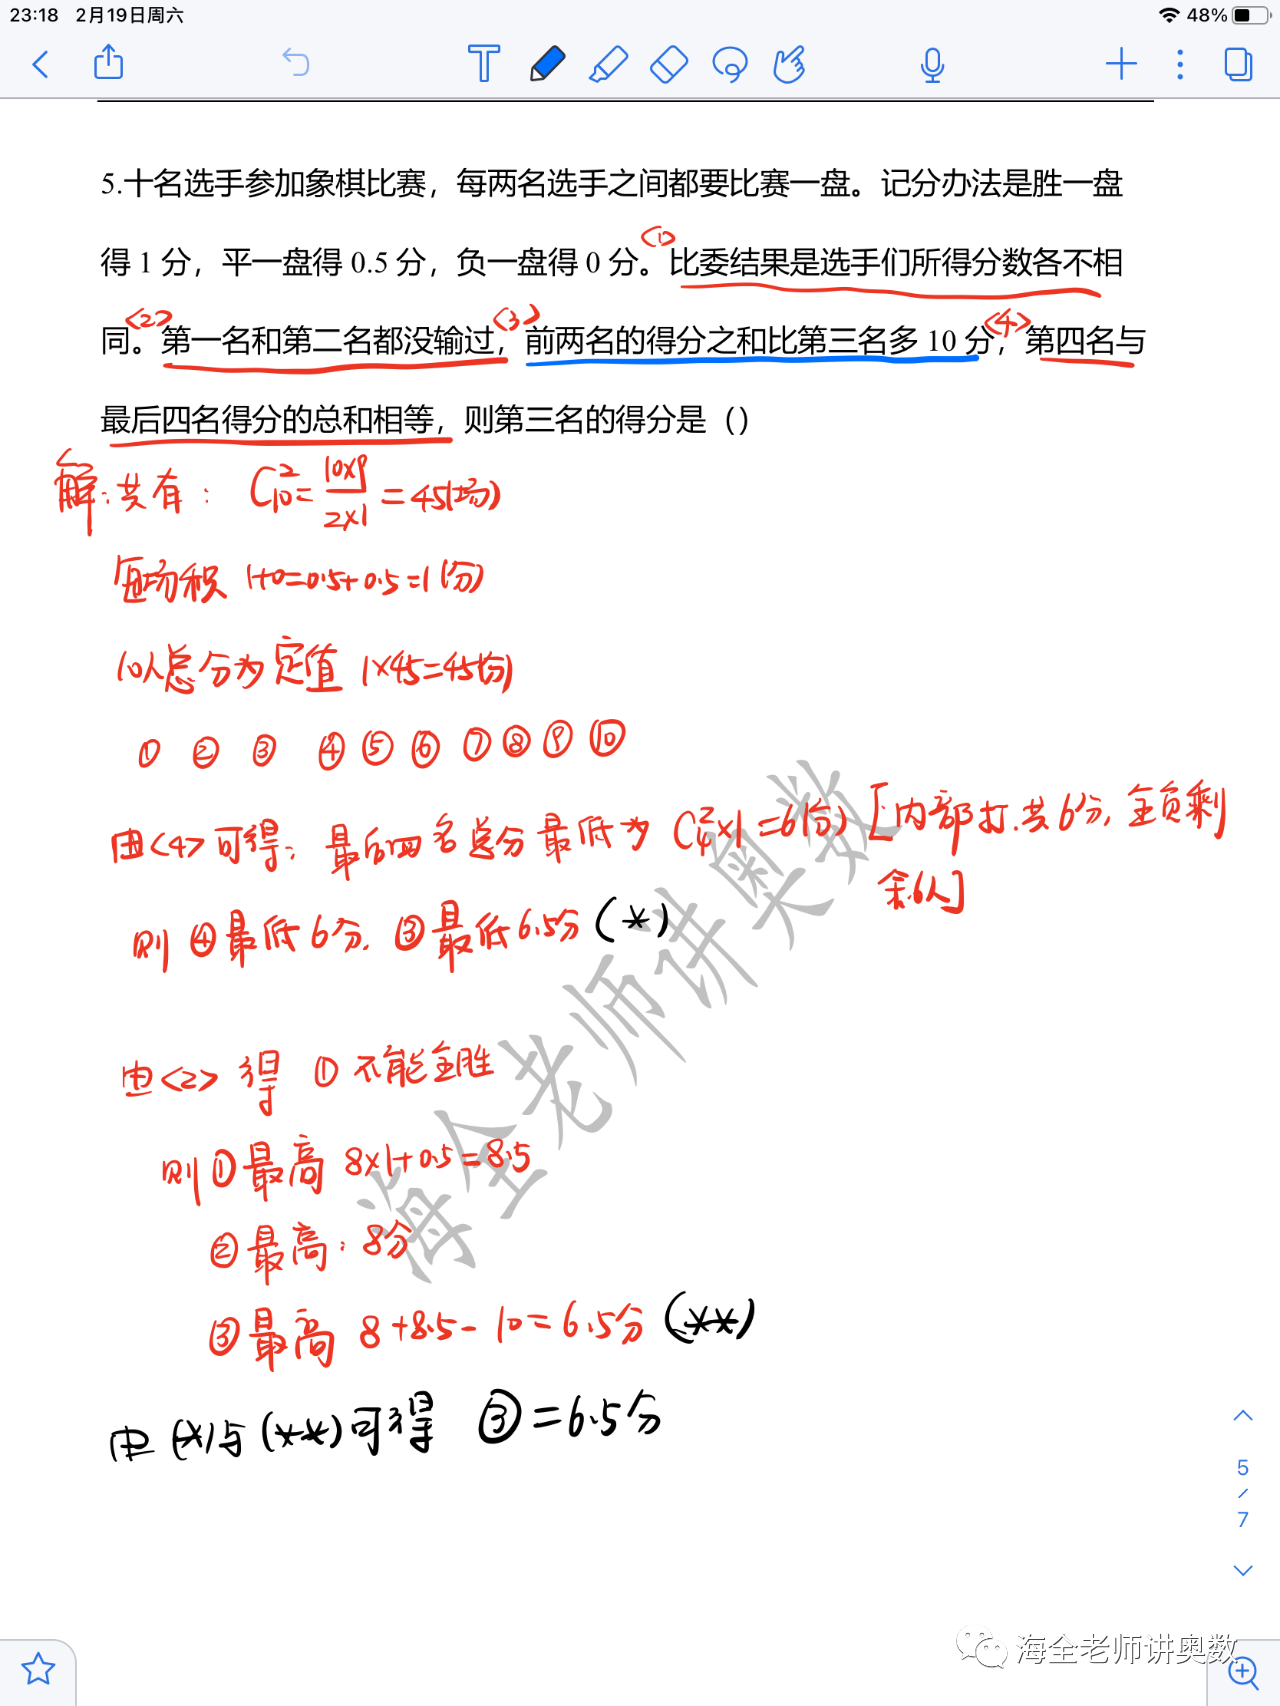 23:18 2月19日周六 48%
5.十名选手参加象棋比赛，每两名选手之间都要比赛一盘。记分办法是胜一盘
<1>
得 1 分，平一盘得 0.5 分，负一盘得 0 分。比委结果是选手们所得分数各不相
<2> <3> <4>
同。第一名和第二名都没输过，前两名的得分之和比第三名多 10 分，第四名与
最后四名得分的总和相等，则第三名的得分是（）
解：共有： C₁₀² = 10×9/2×1 = 45(场)
每场积 1+0=0.5+0.5=1(分)
10人总分为定值 1×45=45(分)
① ② ③ ④ ⑤ ⑥ ⑦ ⑧ ⑨ ⑩
由<4>可得：最后四名总分最低为 C₄²×1=6(分) [内部打.共6分,全负剩
余6人]
则 ④最低6分. ③最低6.5分 (*)
由<2> 得 ① 不能全胜
则 ①最高 8×1+0.5=8.5
②最高：8分
③最高 8+8.5-10=6.5分 (**)
由 (*)与(**)可得 ③=6.5分
5
/
7
海全老师讲奥数
海全老师讲奥数